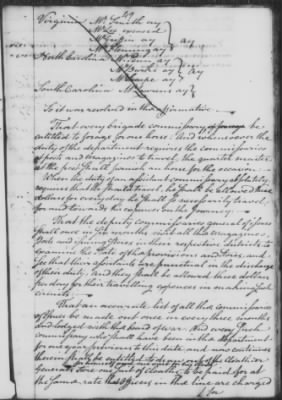 Virginia Mr Smith ay
Mr Lee excused
Mr Griffin ay } ay
Mr Fleming ay
North Carolina Mr Penn ay
Mr Burke ay } ay
Mr Sharpe ay
South Carolina Mr Laurens ay }
So it was resolved in the affirmative.
That every brigade commissary be
entitled to forage for one horse: And whenever the
duty of the department requires the commissaries
of posts and magazines to travel, the quarter master
at the post shall furnish an horse for the occasion.
When the duty of an assistant commissary absolutely
requires that he shall travel, he shall be allowed three
dollars for every day he shall so necessarily travel,
for and towards his expences on the Journey.
That the deputy commissaries general of issues
shall once in six months visit all the magazines,
posts and issuing stores in their respective districts to
examine the state of the provisions and stores, and
see that their assistants are punctual in the discharge
of their duty. And they shall be allowed three dollars
per day for their travelling expences in making such
circuits.
That an accurate list of all the commissaries
of issues be made out once in every three months
and lodged with the board of war. And every such
commissary who shall have been in the department
for one year previous to this date and now continues
therein shall be entitled to draw out of the Clothier
Generals store one suit of cloaths to be paid for at
the same rate that officers in the line are charged
for